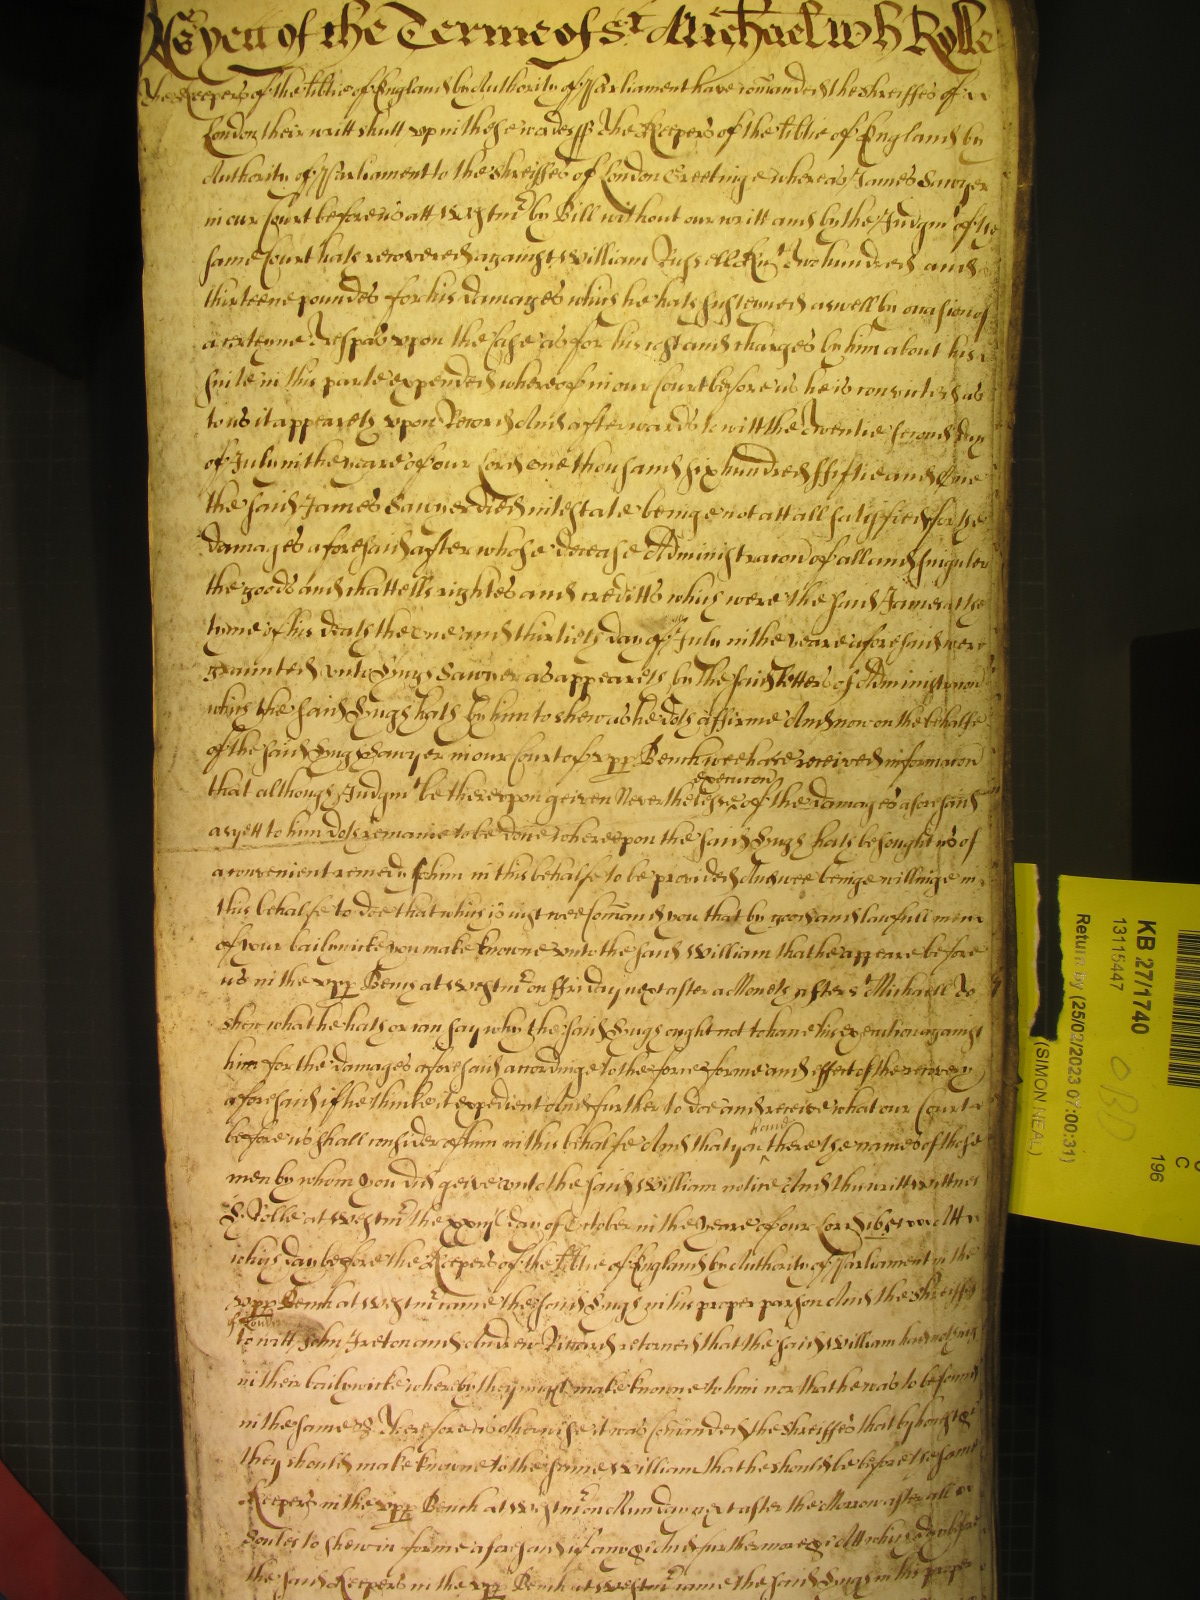 As yett of the Terme of St Michael wth Rolle
The Keepers of the libtie of England by Authority of Parliament have comanded the shreiffes of
London their writt shutt vp in these wordes ss The Keepers of the libtie of England by
Authority of Parliament to the shreiffes of London Greetinge whereas James Sawyer
in our Court before us att Westmr by Bill without our writt and by the Judgmt of the
same Court hath recovered against William Russell Knt Two hundred and
thirteene poundes for his damages which he hath susteyned aswell by occasion of
a certeyne Trespas vpon the Case as for his cost and charges by him about his
suite in this parte expended whereof in our Court before us he is convicted as
to us it appeareth vpon Record And afterwards to witt the Twentie second day
of July in the yeare of our Lord one thousand six hundred ffiftie and One
the said James Sawyer died intestate beinge not att all satisfied for the
damages aforesaid after whose decease Administracon of all and singuler
the goods and chattells rightes and creditts which were the said James at the
tyme of his death the one and thirtieth day of July in the yeare aforesaid were
graunted vnto Hugh Sawyer as appeareth by the said letters of Administracon
which the said Hugh hath by him to shew as he doth affirme And now on the behalfe
of the said Hugh Sawyer in our Court of vpp Bench wee have received informacon
that although Judgmt be therevpon geiven Neverthelesse execucon of the damages aforesaid
as yett to him doth remaine to be done wherevpon the said Hugh hath besought us of
a convenient remedy to him in this behalfe to be provided And wee beinge willinge in
this behalfe to doe that which is just wee comand you that by good and lawfull men
of your bailywicke you make knowne vnto the said William that he appeare before
us in the vpp Bench at Westmr on ffriday next after a Moneth after St Michaell To
shew what he hath or can say why the said Hugh ought not to have his execution against
him for the damages aforesaid accordinge to the force forme and effect of the recovery
aforesaid if he thinke it expedient And further to doe and receive what our Court
before us shall consider of him in this behalfe And that you have there the names of those
men by whom you did geive vnto the said William notice And this writt wittnes
H Rolle at Westmr the xxiijth day of October in the yeare of our Lord 1651 Att
which day before the Keepers of the libtie of England by Authority of Parliament in the
vpp Bench at Westmr came the said Hugh in his proper person And the shreiffes
of London
to witt John Ireton and Andrew Riccard retorned that the said William had nothing
in their bailywicke whereby they might make knowne to him nor that he was to be found
in the same &c Therefore as otherwise it was comanded the shreiffes that by honest &c
they should make knowne to the same William that he should be before the same
Keepers in the vpp Bench at Westmr on Munday next after the Morrow after all
Soules to shew in forme aforesaid if any &c And furthermore &c Att which day before
the said Keepers in the vpp Bench at Westmr came the said Hugh in his proper
KB 27/1740
13115447
Return by (25/02/2023 07:00:31)
(SIMON NEAL)
C
196